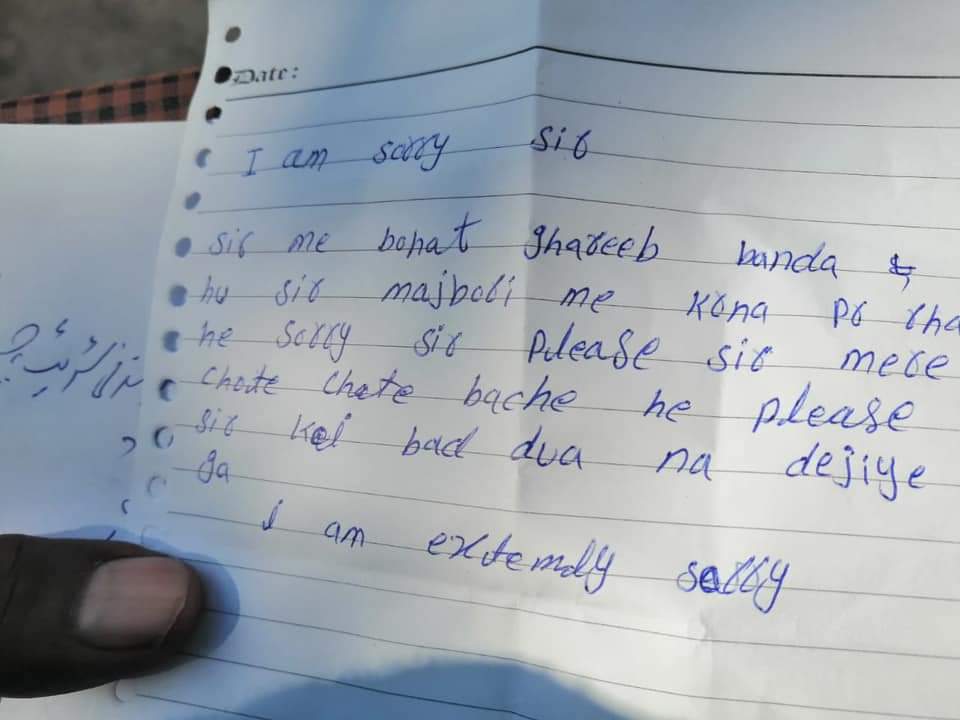 Date:
I am sorry sir
sir me bohat ghareeb banda
hu sir majbori me krna pr rha
he sorry sir please sir mere
chote chote bache he please
sir koi bad dua na dejiye
ga
i am extemdly sorry